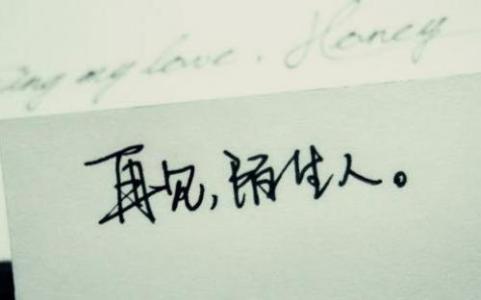 ing my love. Honey
再见,陌生人。